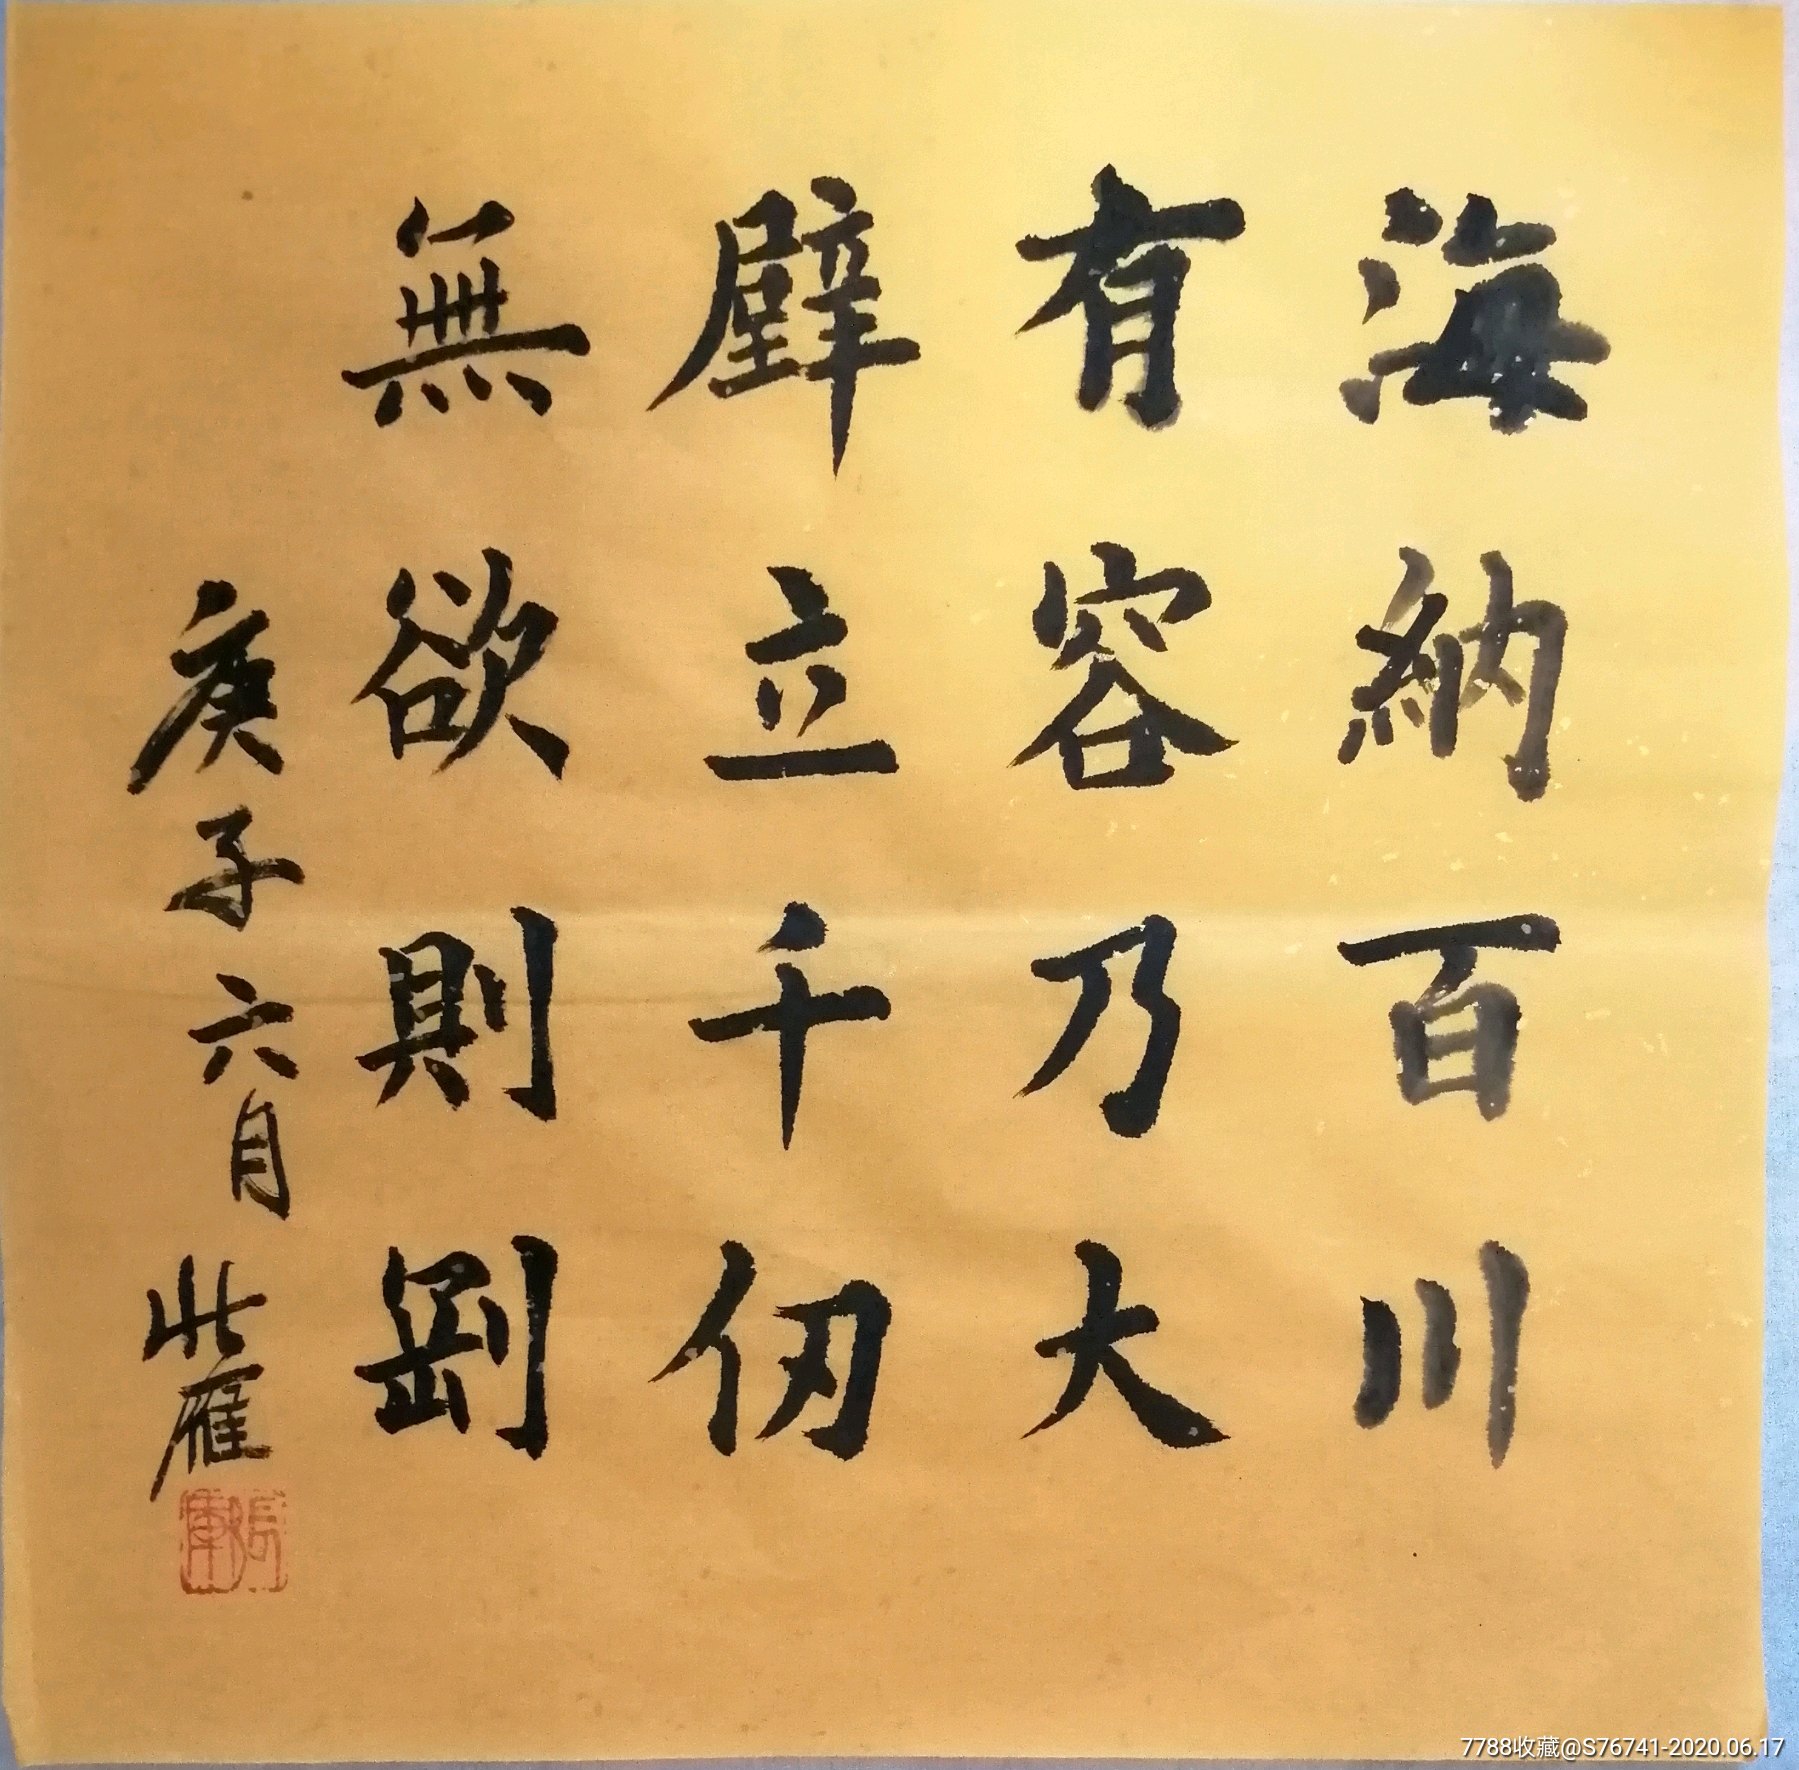 海納百川
有容乃大
壁立千仞
無欲則剛
庚子六月 此雁
7788收藏@S76741-2020.06.17